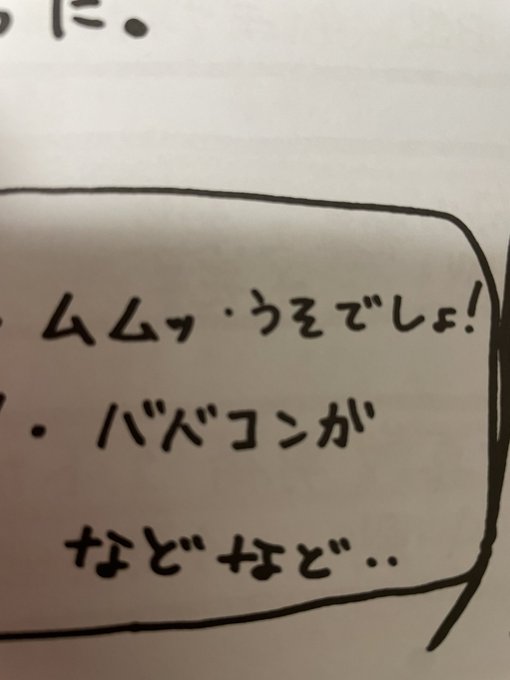 に。
・ムムッ・うそでしょ!
・ババコンが
などなど‥